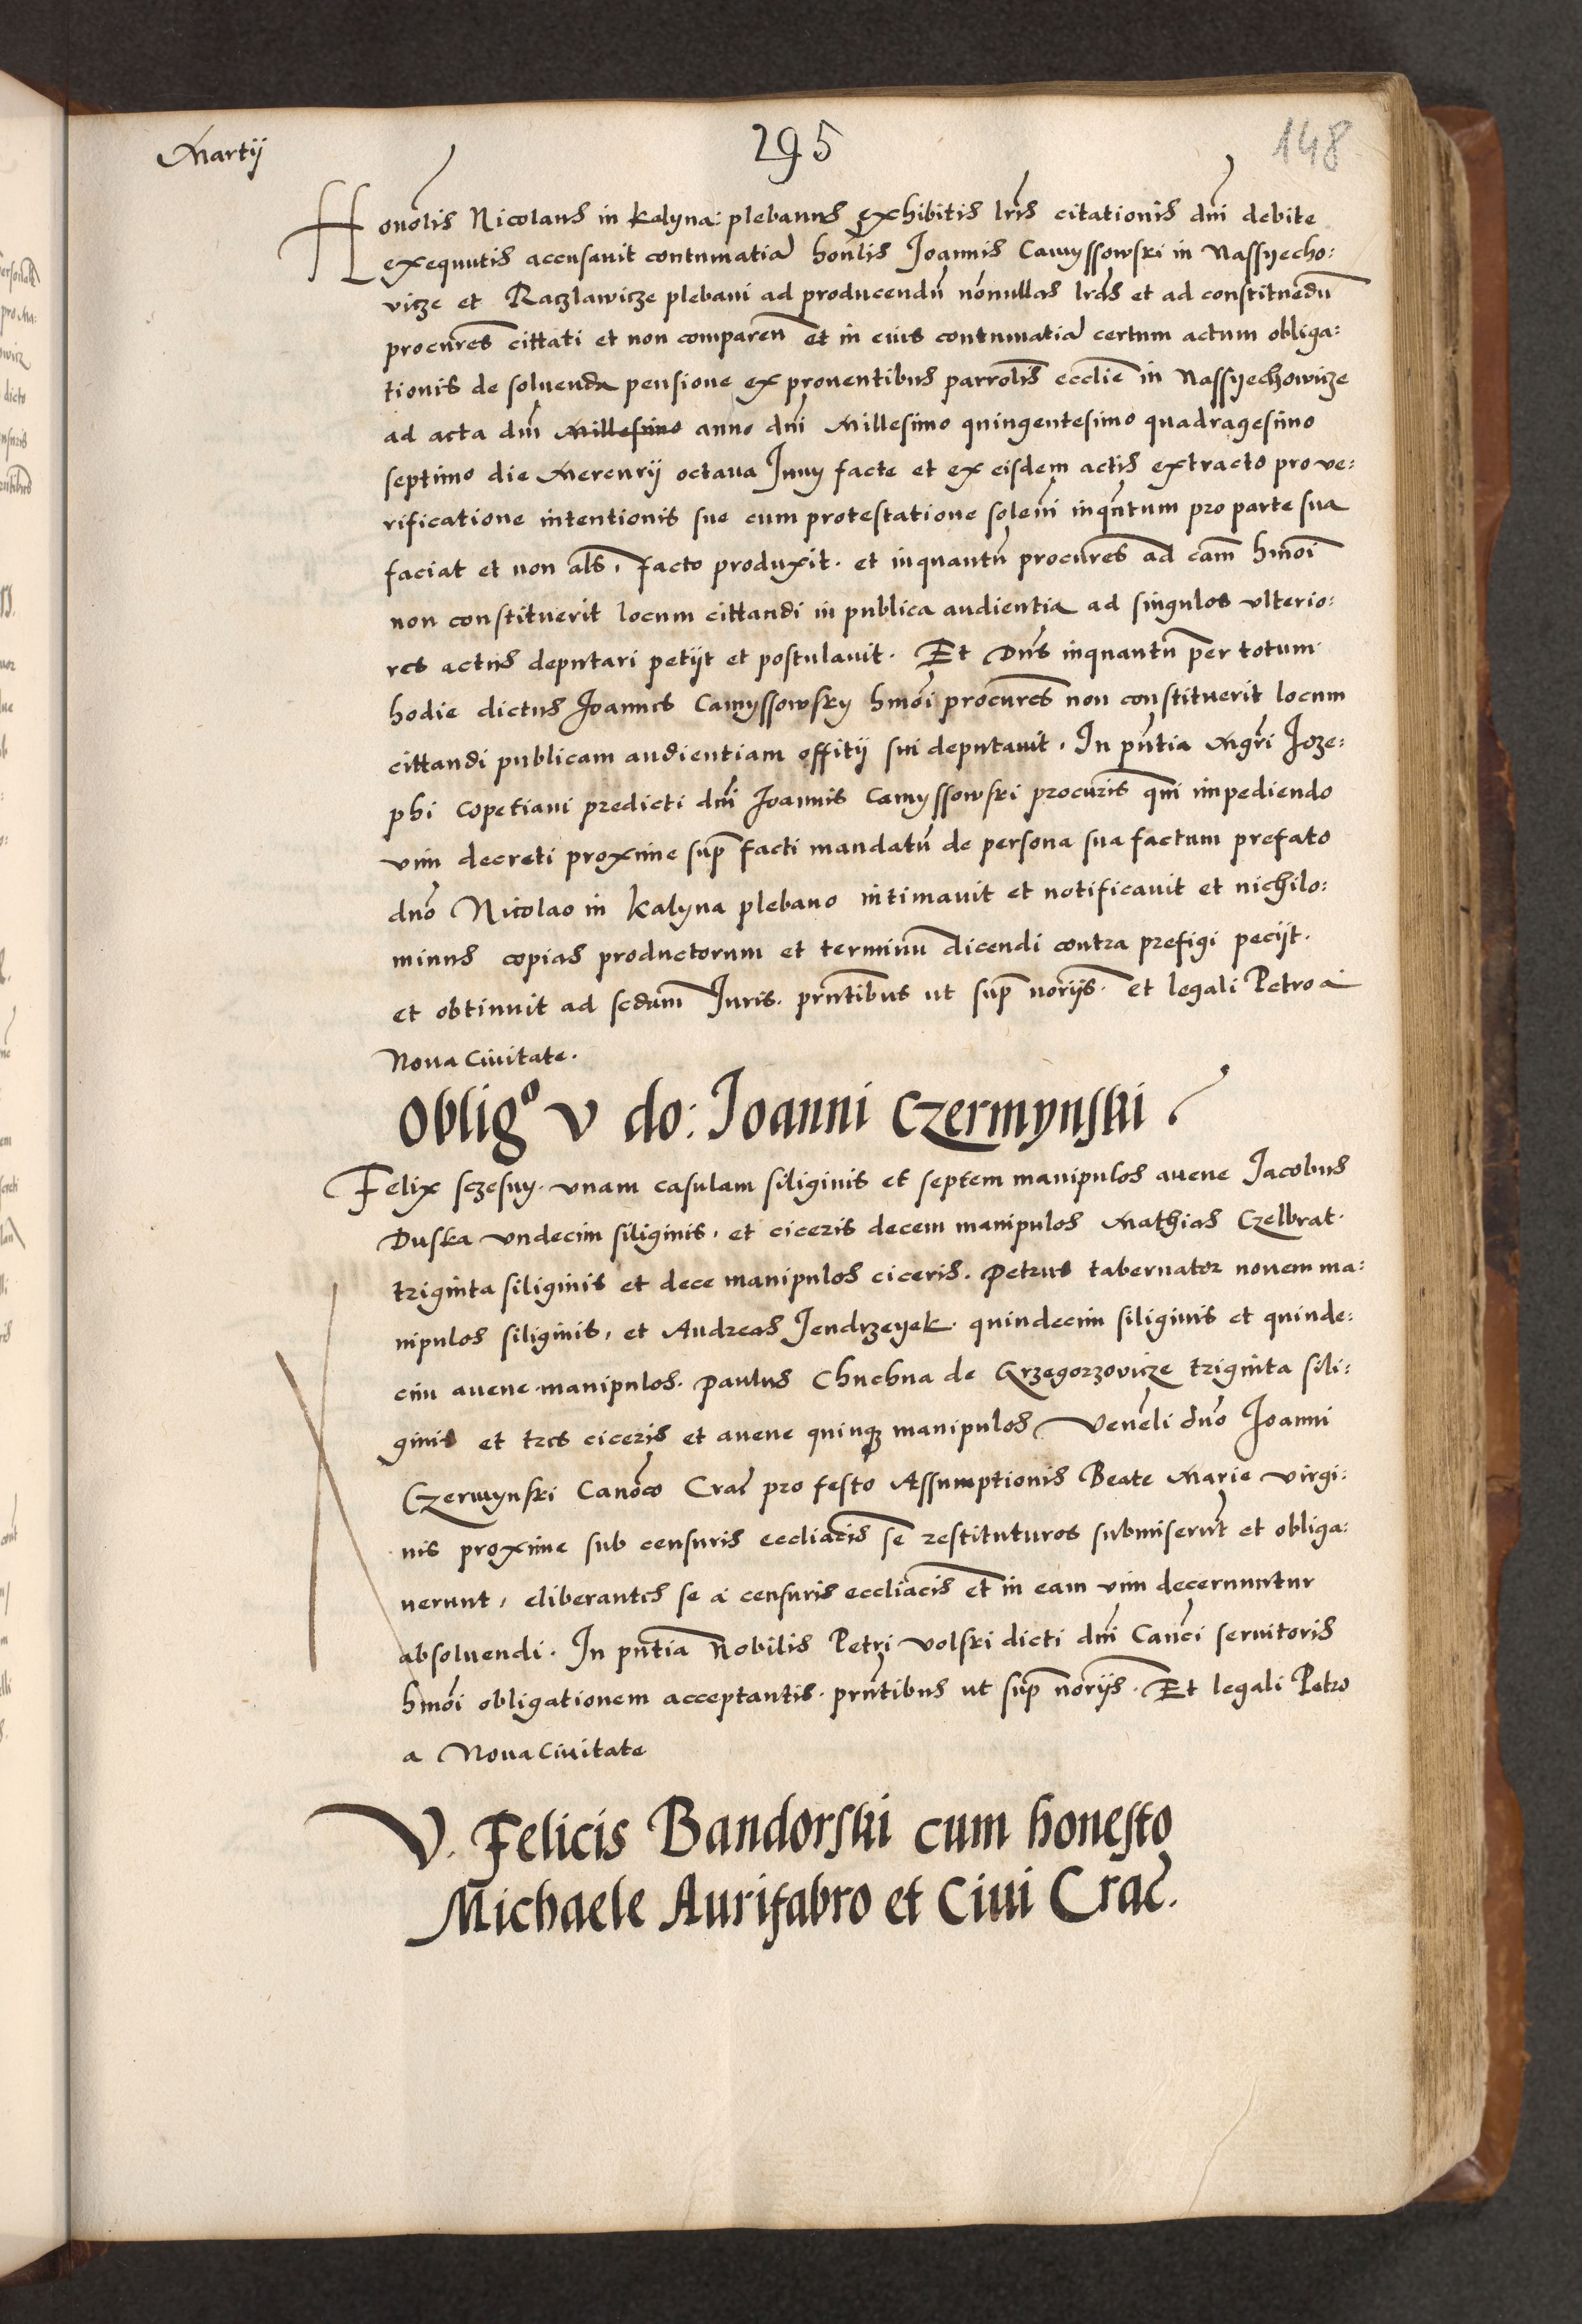 Martij
295
148
Honorlis Nicolaus in Kalyna: plebanus exhibitis lris citationis dni debite
exequutis accusavit contumatia honlis Joannis Camyssowski in Nassyecho:
vicze et Raczlawicze plebani ad producendu nonnullas lras et ad constituedu
procures cittati et non comparen et in eius contumatia certum actum obliga:
tionis de soluenda pensione ex prouentibus parrolis ecclie in Nassyechowicze
ad acta dni Millesimo anno dni Millesimo quingentesimo quadragesimo
septimo die Mercurij octaua Juny facte et ex eisdem actis extracto pro ve:
rificatione intentionis sue cum protestatione soleni inqntum pro parte sua
faciat et non als, facto produxit. et inquantu procures ad cam hmoi
non constituerit locum cittandi in publica audientia ad singulos vlterio:
res actus deputari petijt et postulauit. Et Dns inquantu per totum
hodie dictus Joannes Camyssowsky hmoi procures non constituerit locum
cittandi publicam audientiam offitij sui deputauit. In pntia Mgri Joze:
phi Copetiani predicti dni Joannis Camyssowski procuris qui impediendo
vim decreti proxime sup facti mandatu de persona sua factum prefato
dno Nicolao in Kalyna plebano intimauit et notificauit et nichilo:
minus copias productorum et terminu dicendi contra prefigi pecijt.
et obtinuit ad sedam Juris. prntibus ut sup norijs. et legali Petro a
Noua Ciuitate.
Oblig⁰ V do: Joanni Czermynski
Felix sczesny. vnam casulam siliginis et septem manipulos avene Jacobus
Duska vndecim siliginis, et ciceris decem manipulos Mathias Czelbrat.
triginta siliginis et dece manipulos ciceris. Petrus tabernator novem ma:
nipulos siliginis, et Andreas Jendrzeyek. quindecim siliginis et quinde:
cim avene manipulos. Paulus Chuchna de Grzegorzovicze triginta sili:
ginis et tres ciceris et avene quinqz manipulos Veneli dno Joanni
Czermynski Canoco Crac pro festo Assumptionis Beate Marie virgi:
nis proxime sub censuris eccliacis se restituturos submiserut et obliga:
uerunt, eliberantes se a censuris eccliacis et in eam vim decernuntur
absoluendi. In pntia Nobilis Petri Volski dicti dni Canci seruitoris
hmoi obligationem acceptantis. prntibus ut sup norijs. Et legali Petro
a Noua Ciuitate
V. Felicis Bandorski cum honesto
Michaele Aurifabro et Ciui Crac.